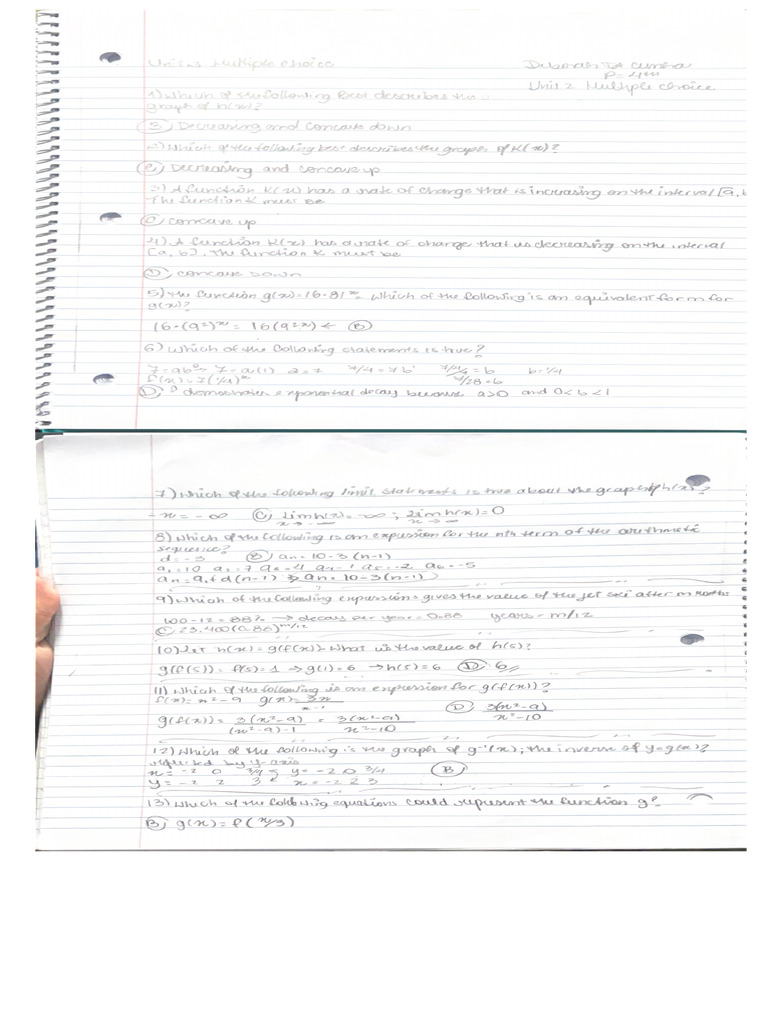 Unit 2 Multiple Choice
Deborah Da Cunha
P = 4th
Unit 2 Multiple choice
1) Which of the following best describes the
graph of h(x)?
B) Decreasing and concave down
2) Which of the following best describes the graph of K(x)?
C) Decreasing and concave up
3) A function K(x) has a rate of change that is increasing on the interval [a, b
The function K must be
C) concave up
4) A function K(x) has a rate of change that is decreasing on the interval
[a, b]. The function K must be
D) concave down
5) The function g(x)=16·81ˣ. Which of the following is an equivalent form for
g(x)?
16·(9²)ˣ = 16(9²ˣ) ← B
6) Which of the following statements is true?
7=ab⁰ 7=a(1) a=7 7/4=7b¹ =b b=1/4
f(x)=7(1/4)ˣ 7/28=b
D) f demonstrates exponential decay because a>0 and 0<b<1
7) Which of the following limit statements is true about the graph of h(x)?
-x = -∞ C) lim h(x)=∞; lim h(x)=0
x→-∞ x→∞
8) Which of the following is an expression for the nth term of the arithmetic
sequence?
d=-3 B) an=10-3(n-1)
a₁=10 a₂=7 a₃=4 a₄=1 a₅=-2 a₆=-5
an=a₁+d(n-1) → an=10-3(n-1)
9) Which of the following expressions gives the value of the jet ski after m months
100-12=88% → decays per year=0.88 years=m/12
C) 23,400(0.88)^m/12
10) Let h(x)=g(f(x)). What is the value of h(5)?
g(f(5)) = f(5)=1 → g(1)=6 → h(5)=6 D) 6
11) Which of the following is an expression for g(f(x))?
f(x)=x²-9 g(x)=3x/x-1 D) 3(x²-9)/x²-10
g(f(x)) = 3(x²-9)/(x²-9)-1 = 3(x²-9)/x²-10
12) Which of the following is the graph of g⁻¹(x), the inverse of y=g(x)?
reflected by y-axis
x=-2 0 3/4 y=-2 0 3/4 B
y=-2 2 3 x=-2 2 3
13) Which of the following equations could represent the function g?
B) g(x)=f(x/3)